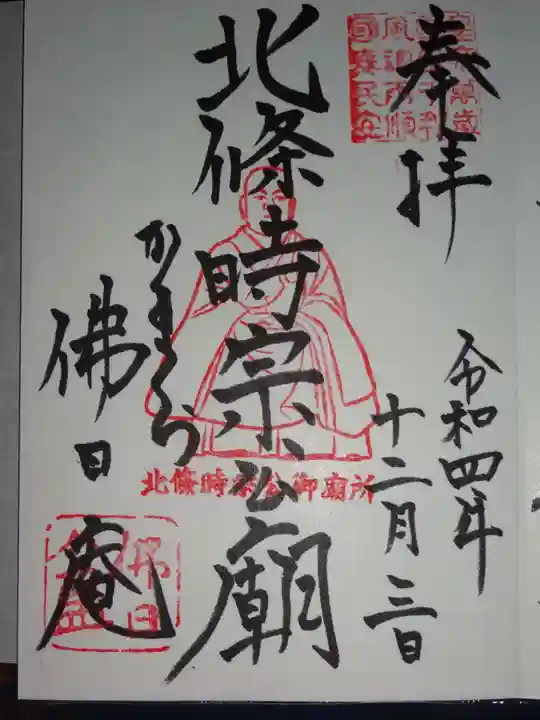 奉拝
令和四年
十二月三日
北條時宗公廟
北條時宗公御廟所
かまくら
佛日庵